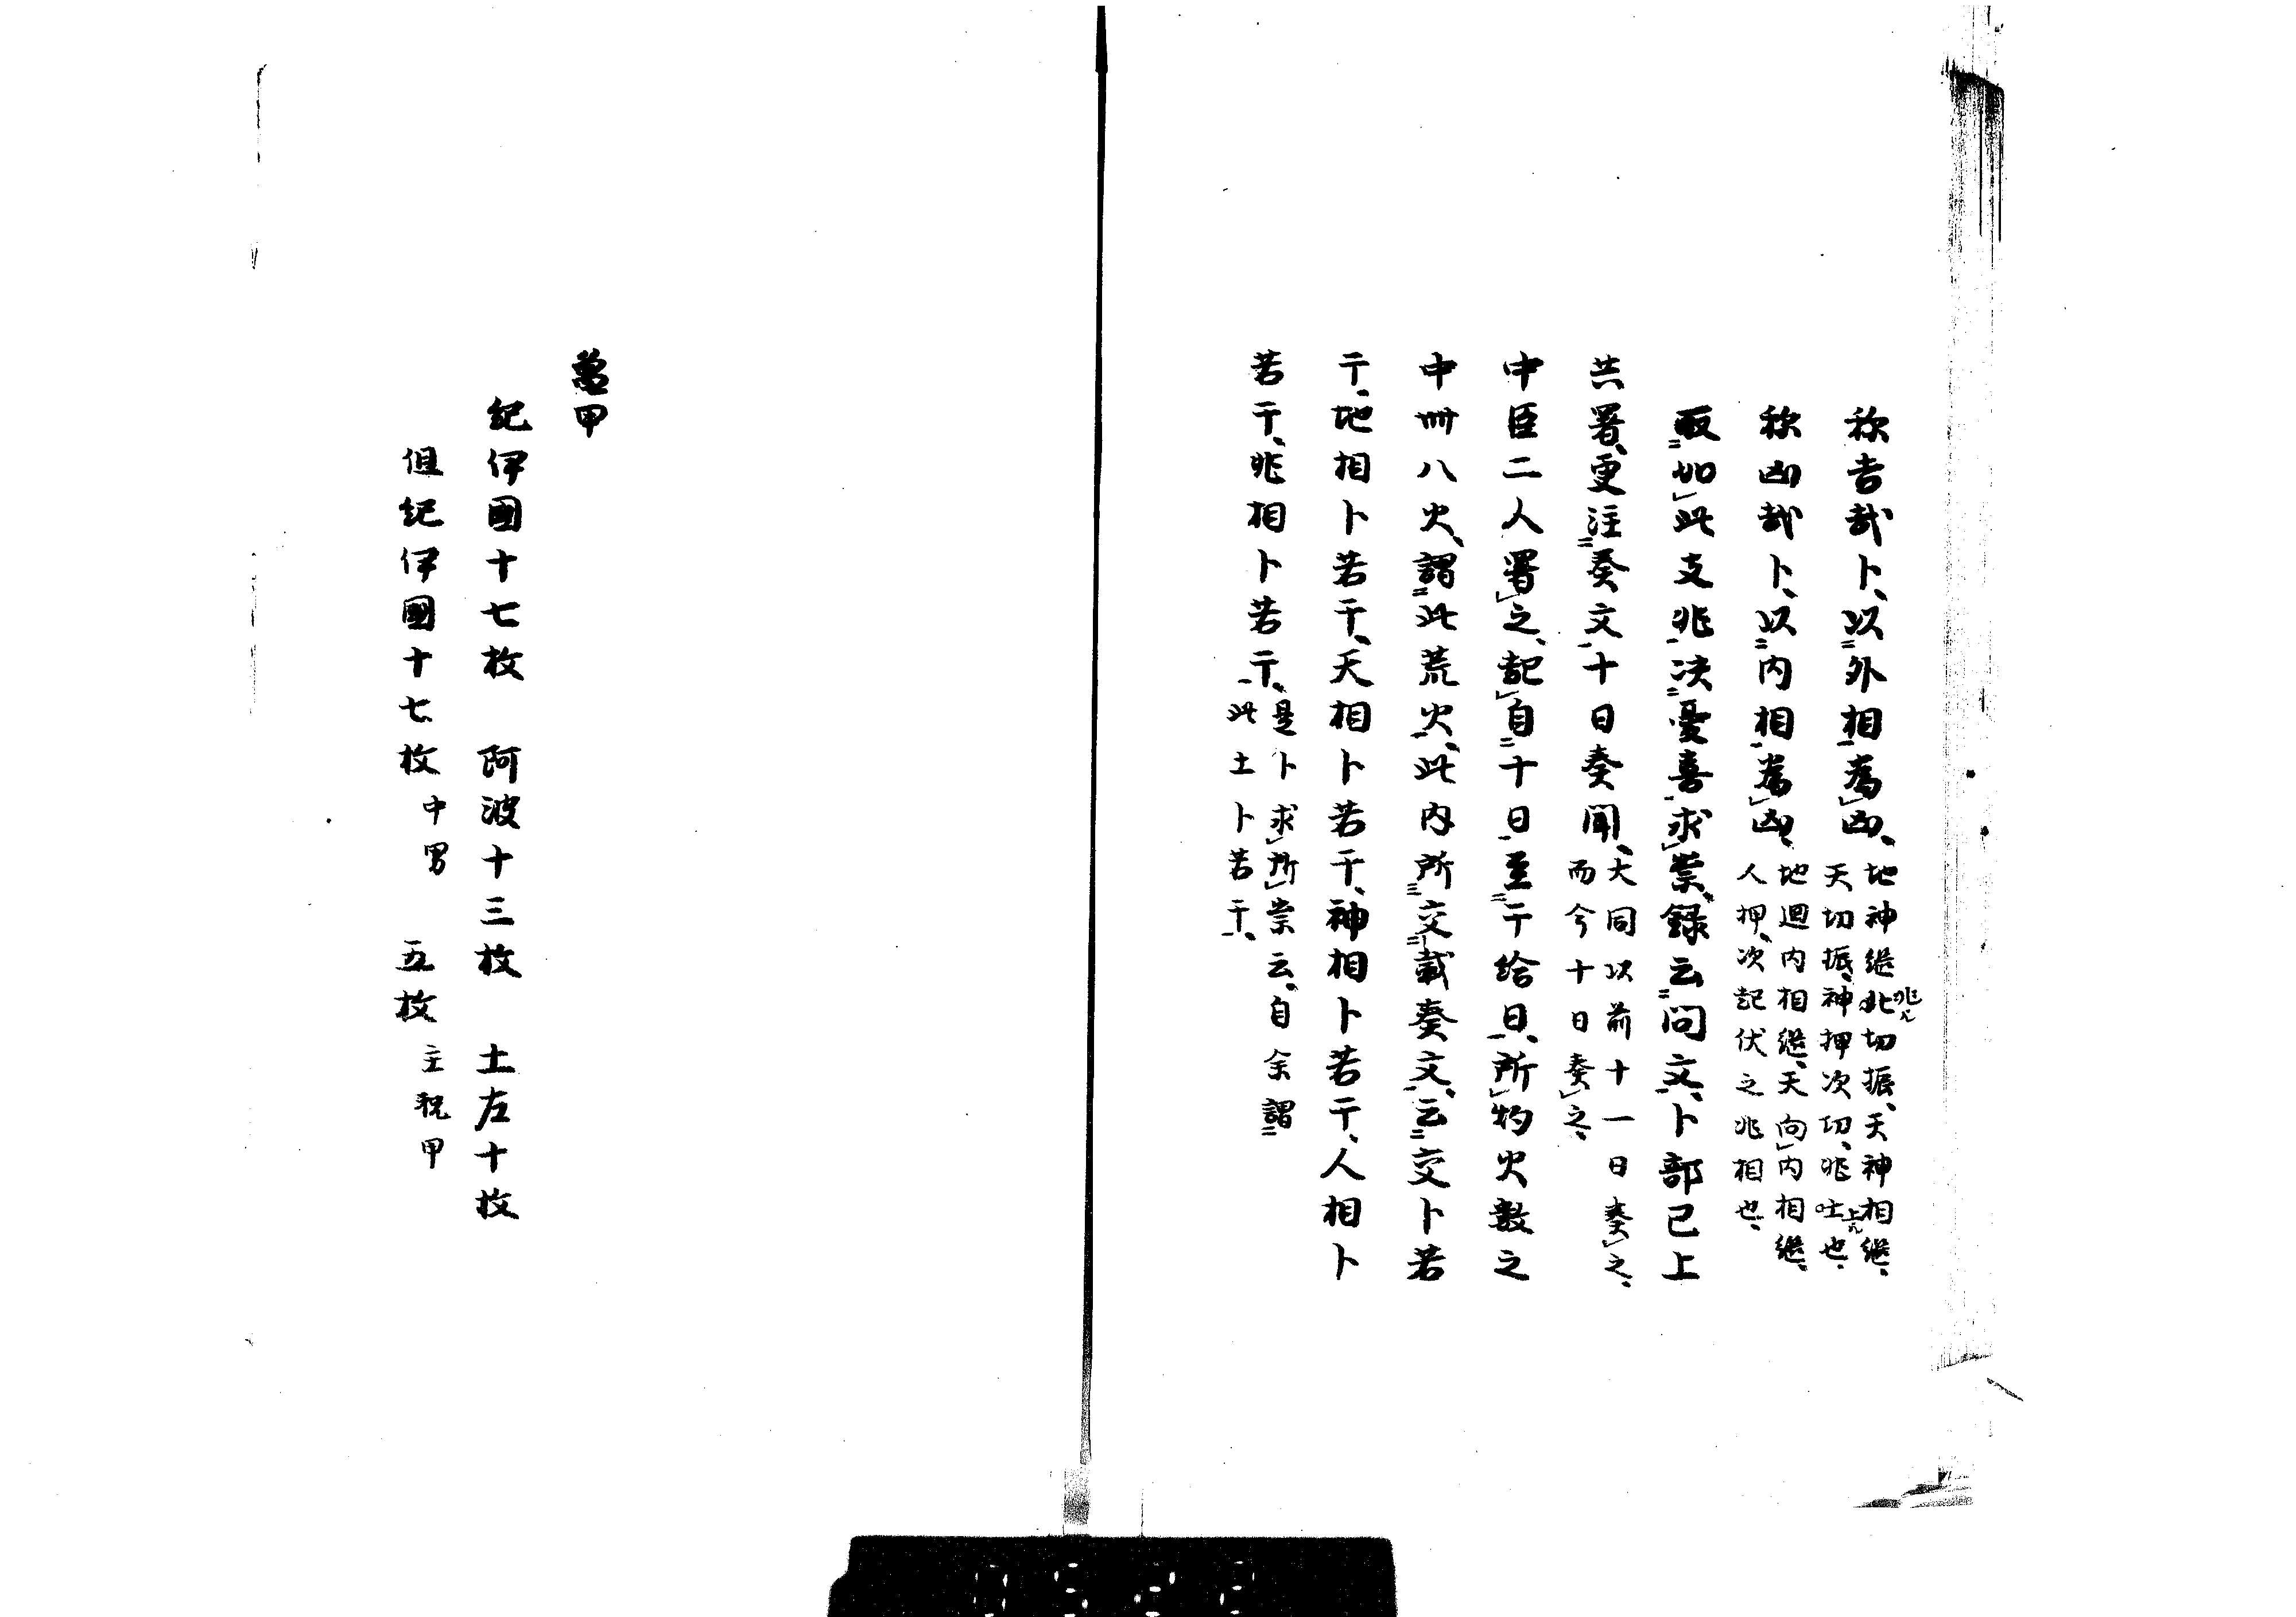 称吉哉卜、以外相為凶、地神継北切振、天神相継、
天切振、神押次切、兆吐也、
称凶哉卜、以内相為凶、地廻内相継、天向内相継、
人押、次記伏之兆相也、
取如此支兆、決憂喜求祟、録云問文、卜部已上
共署、更注奏文、十日奏聞、大同以前十一日奏之、
而今十日奏之、
中臣二人署之、記自十日至于給日、所物火数之
中卌八火、謂此荒火、此内所交載奏文、云交卜若
干、地相卜若干、天相卜若干、神相卜若干、人相卜
若干、兆相卜若干、是卜求所祟云、自余謂
此土卜若干、
亀甲
紀伊國十七枚　阿波十三枚　土左十枚
但紀伊國十七枚中男　五枚主祝甲